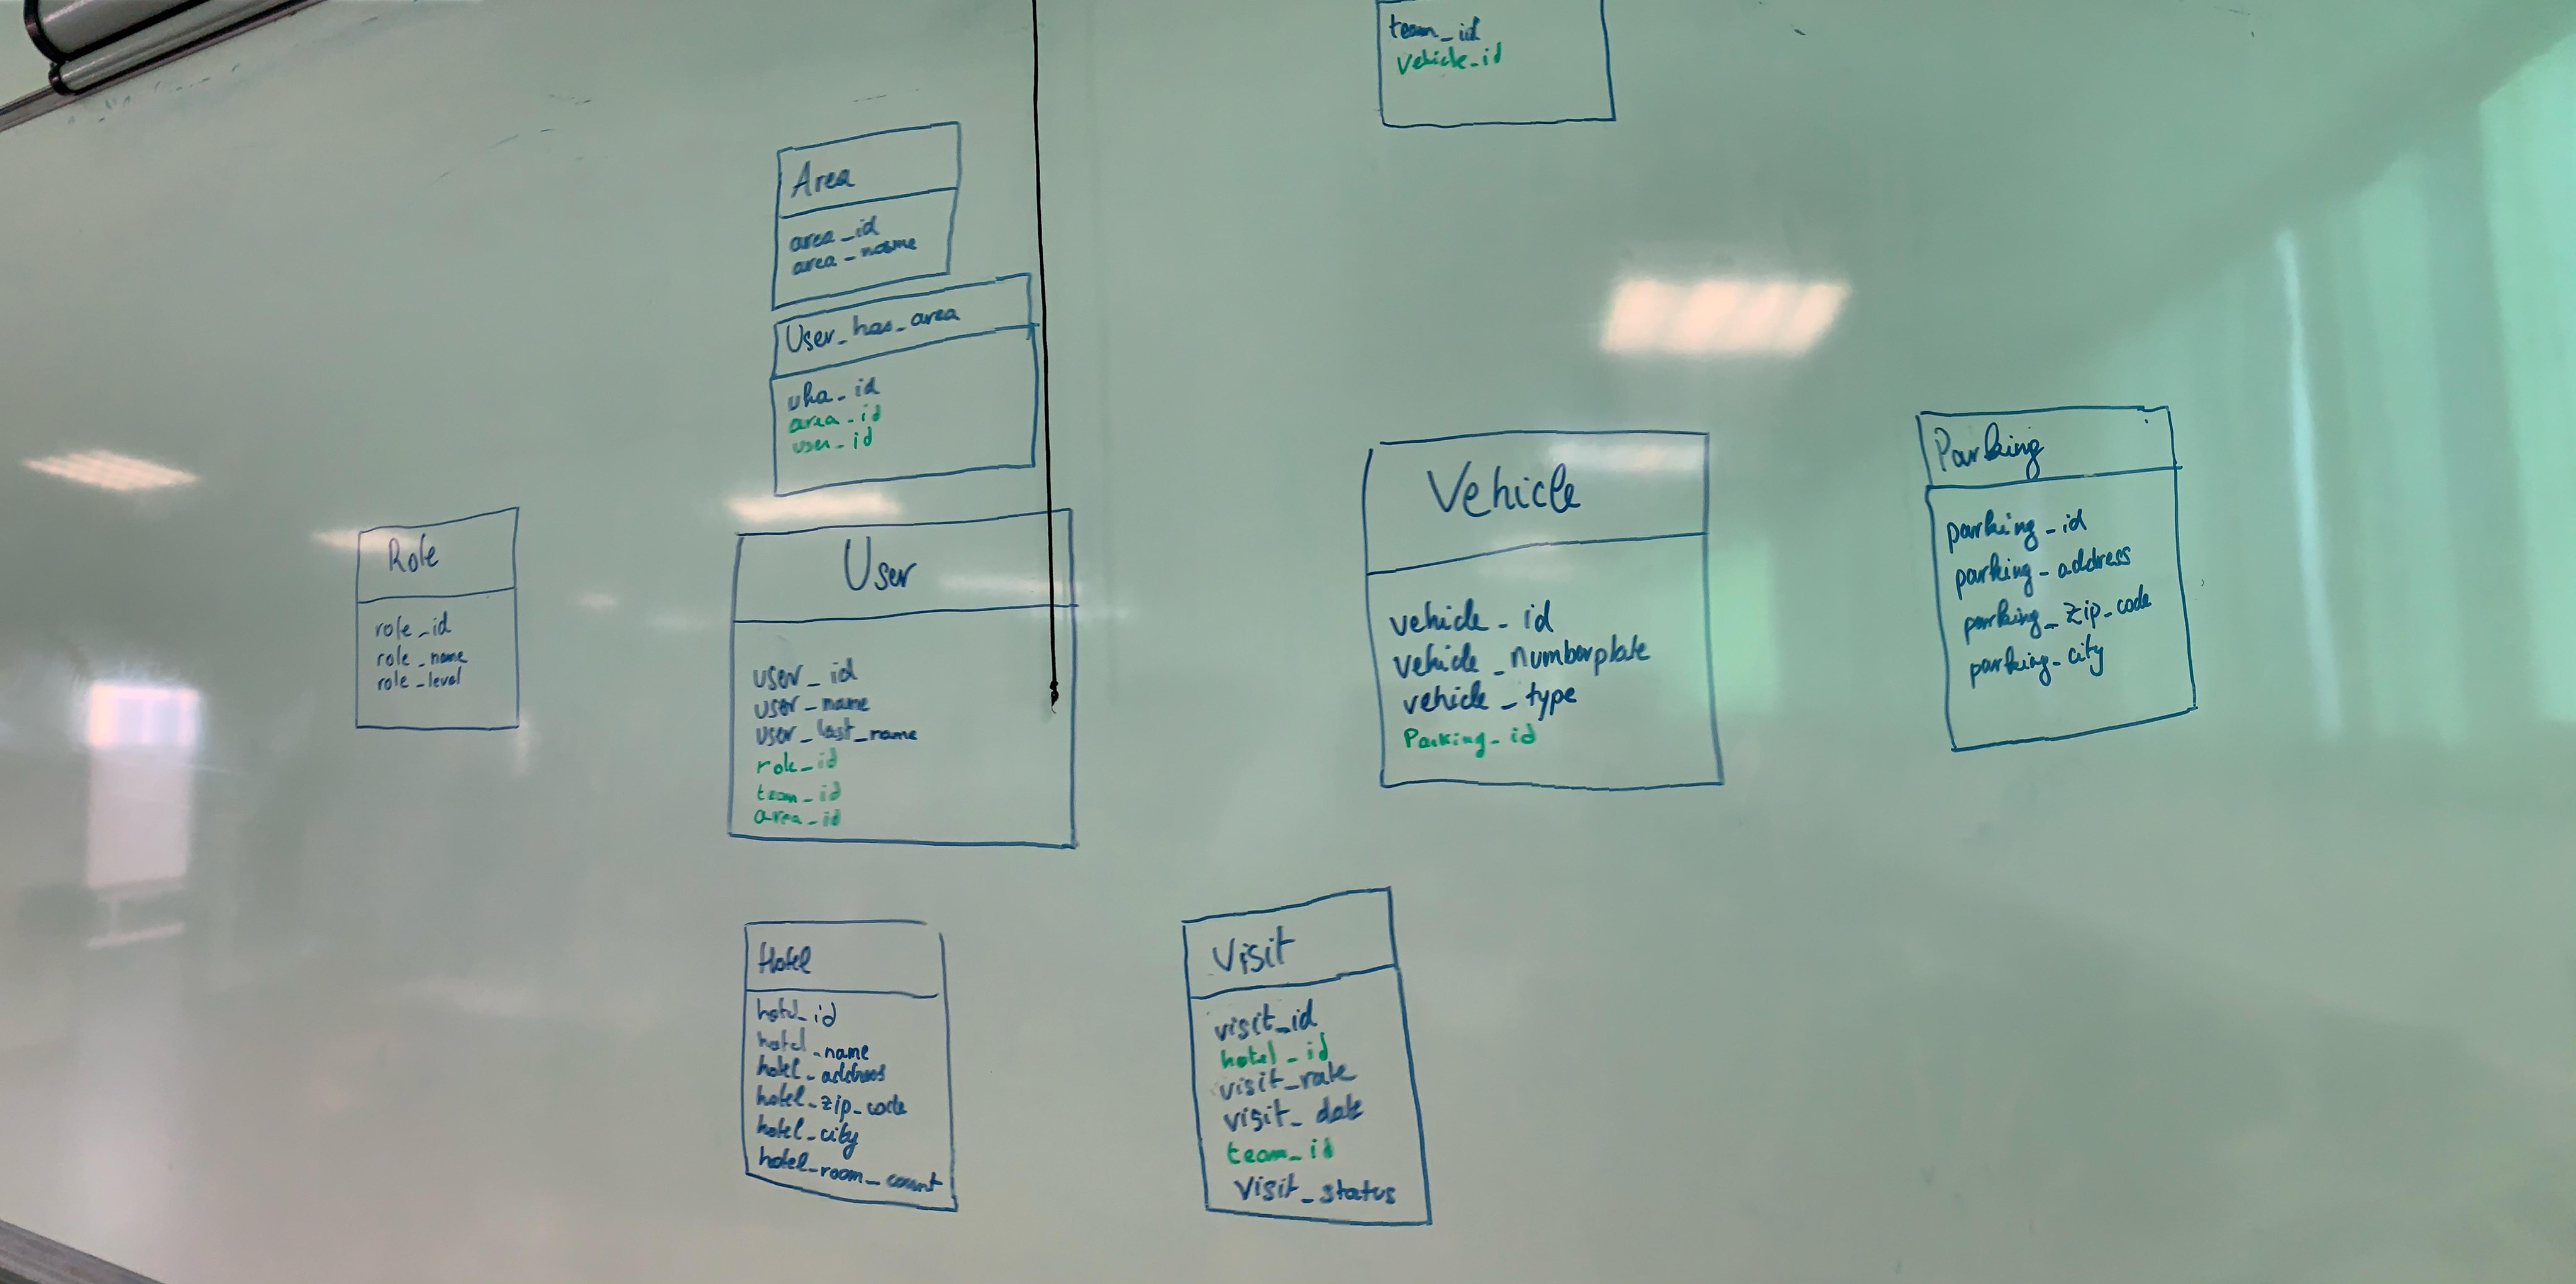 team_id
vehicle_id
Area
area_id
area_name
User_has_area
uha_id
area_id
user_id
Role
role_id
role_name
role_level
User
user_id
user_name
user_last_name
role_id
team_id
area_id
Vehicle
vehicle_id
vehicle_numberplate
vehicle_type
Parking_id
Parking
parking_id
parking_address
parking_zip_code
parking_city
Hotel
hotel_id
hotel_name
hotel_address
hotel_zip_code
hotel_city
hotel_room_count
Visit
visit_id
hotel_id
visit_rate
visit_date
team_id
visit_status